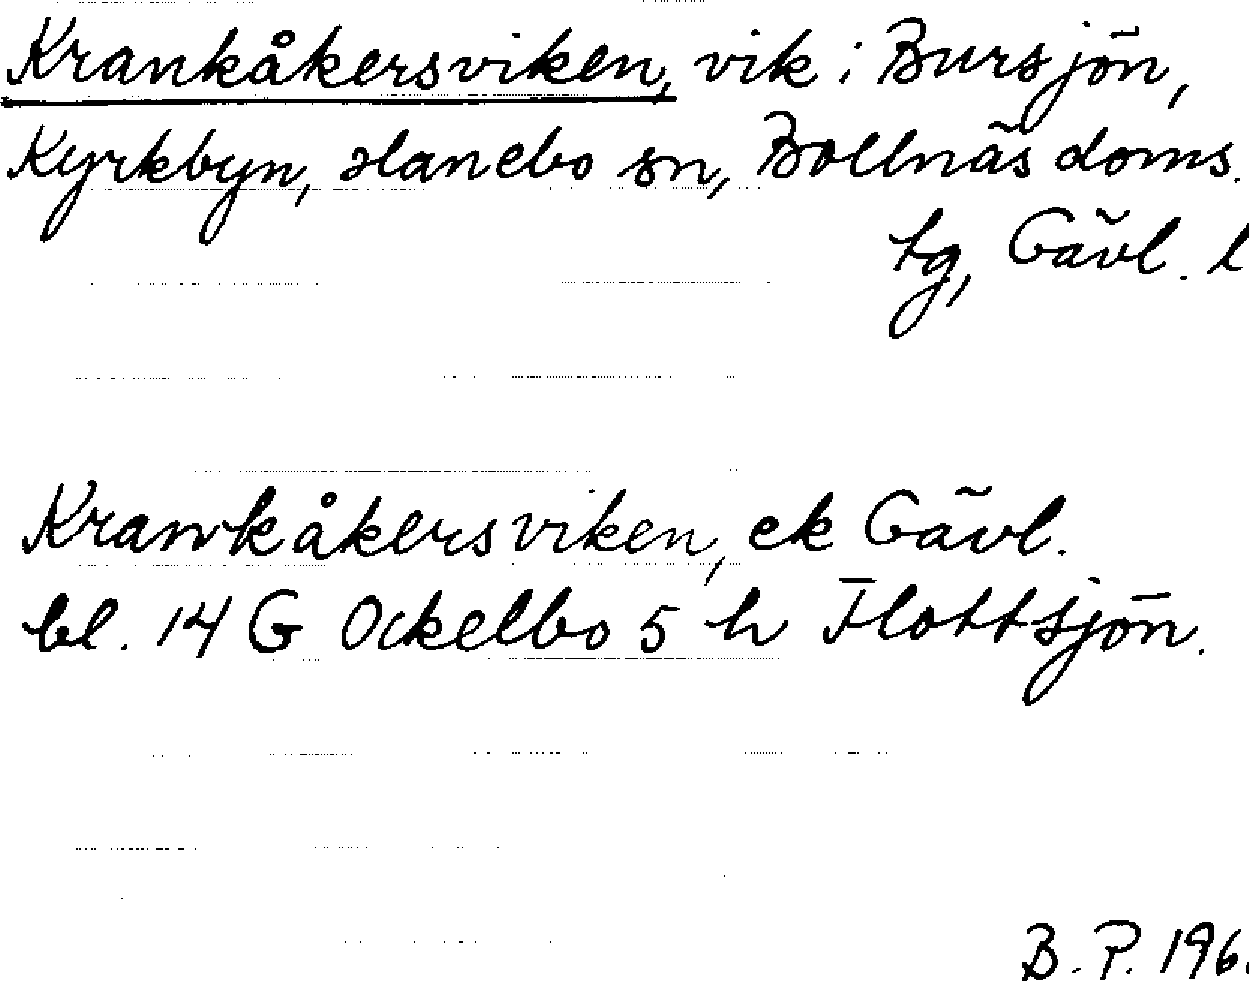 Krankåkersviken, vik i Bursjön,
Kyrkbyn, Hanebo sn, Bollnäs doms.
tg, Gävl. l
Krankåkersviken, ek Gävl.
bl. 14 G Ockelbo 5 h Flottsjön.
B. P. 196